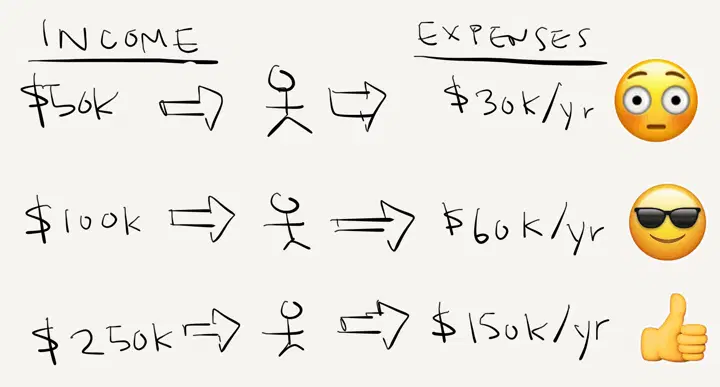 INCOME EXPENSES
$50K $30K/yr
$100k $60K/yr
$250k $150k/yr